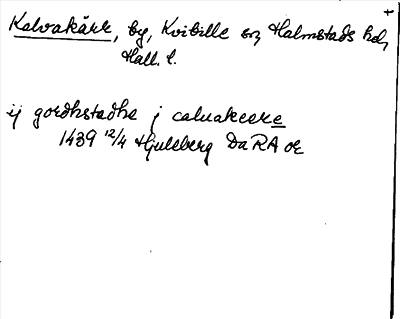 Kalvakärr, by, Kvibille sn, Halmstads hd,
Hall. l.
ij gordhstadhe j caluakerre
1439 12/4 Hjuleberg DaRA or